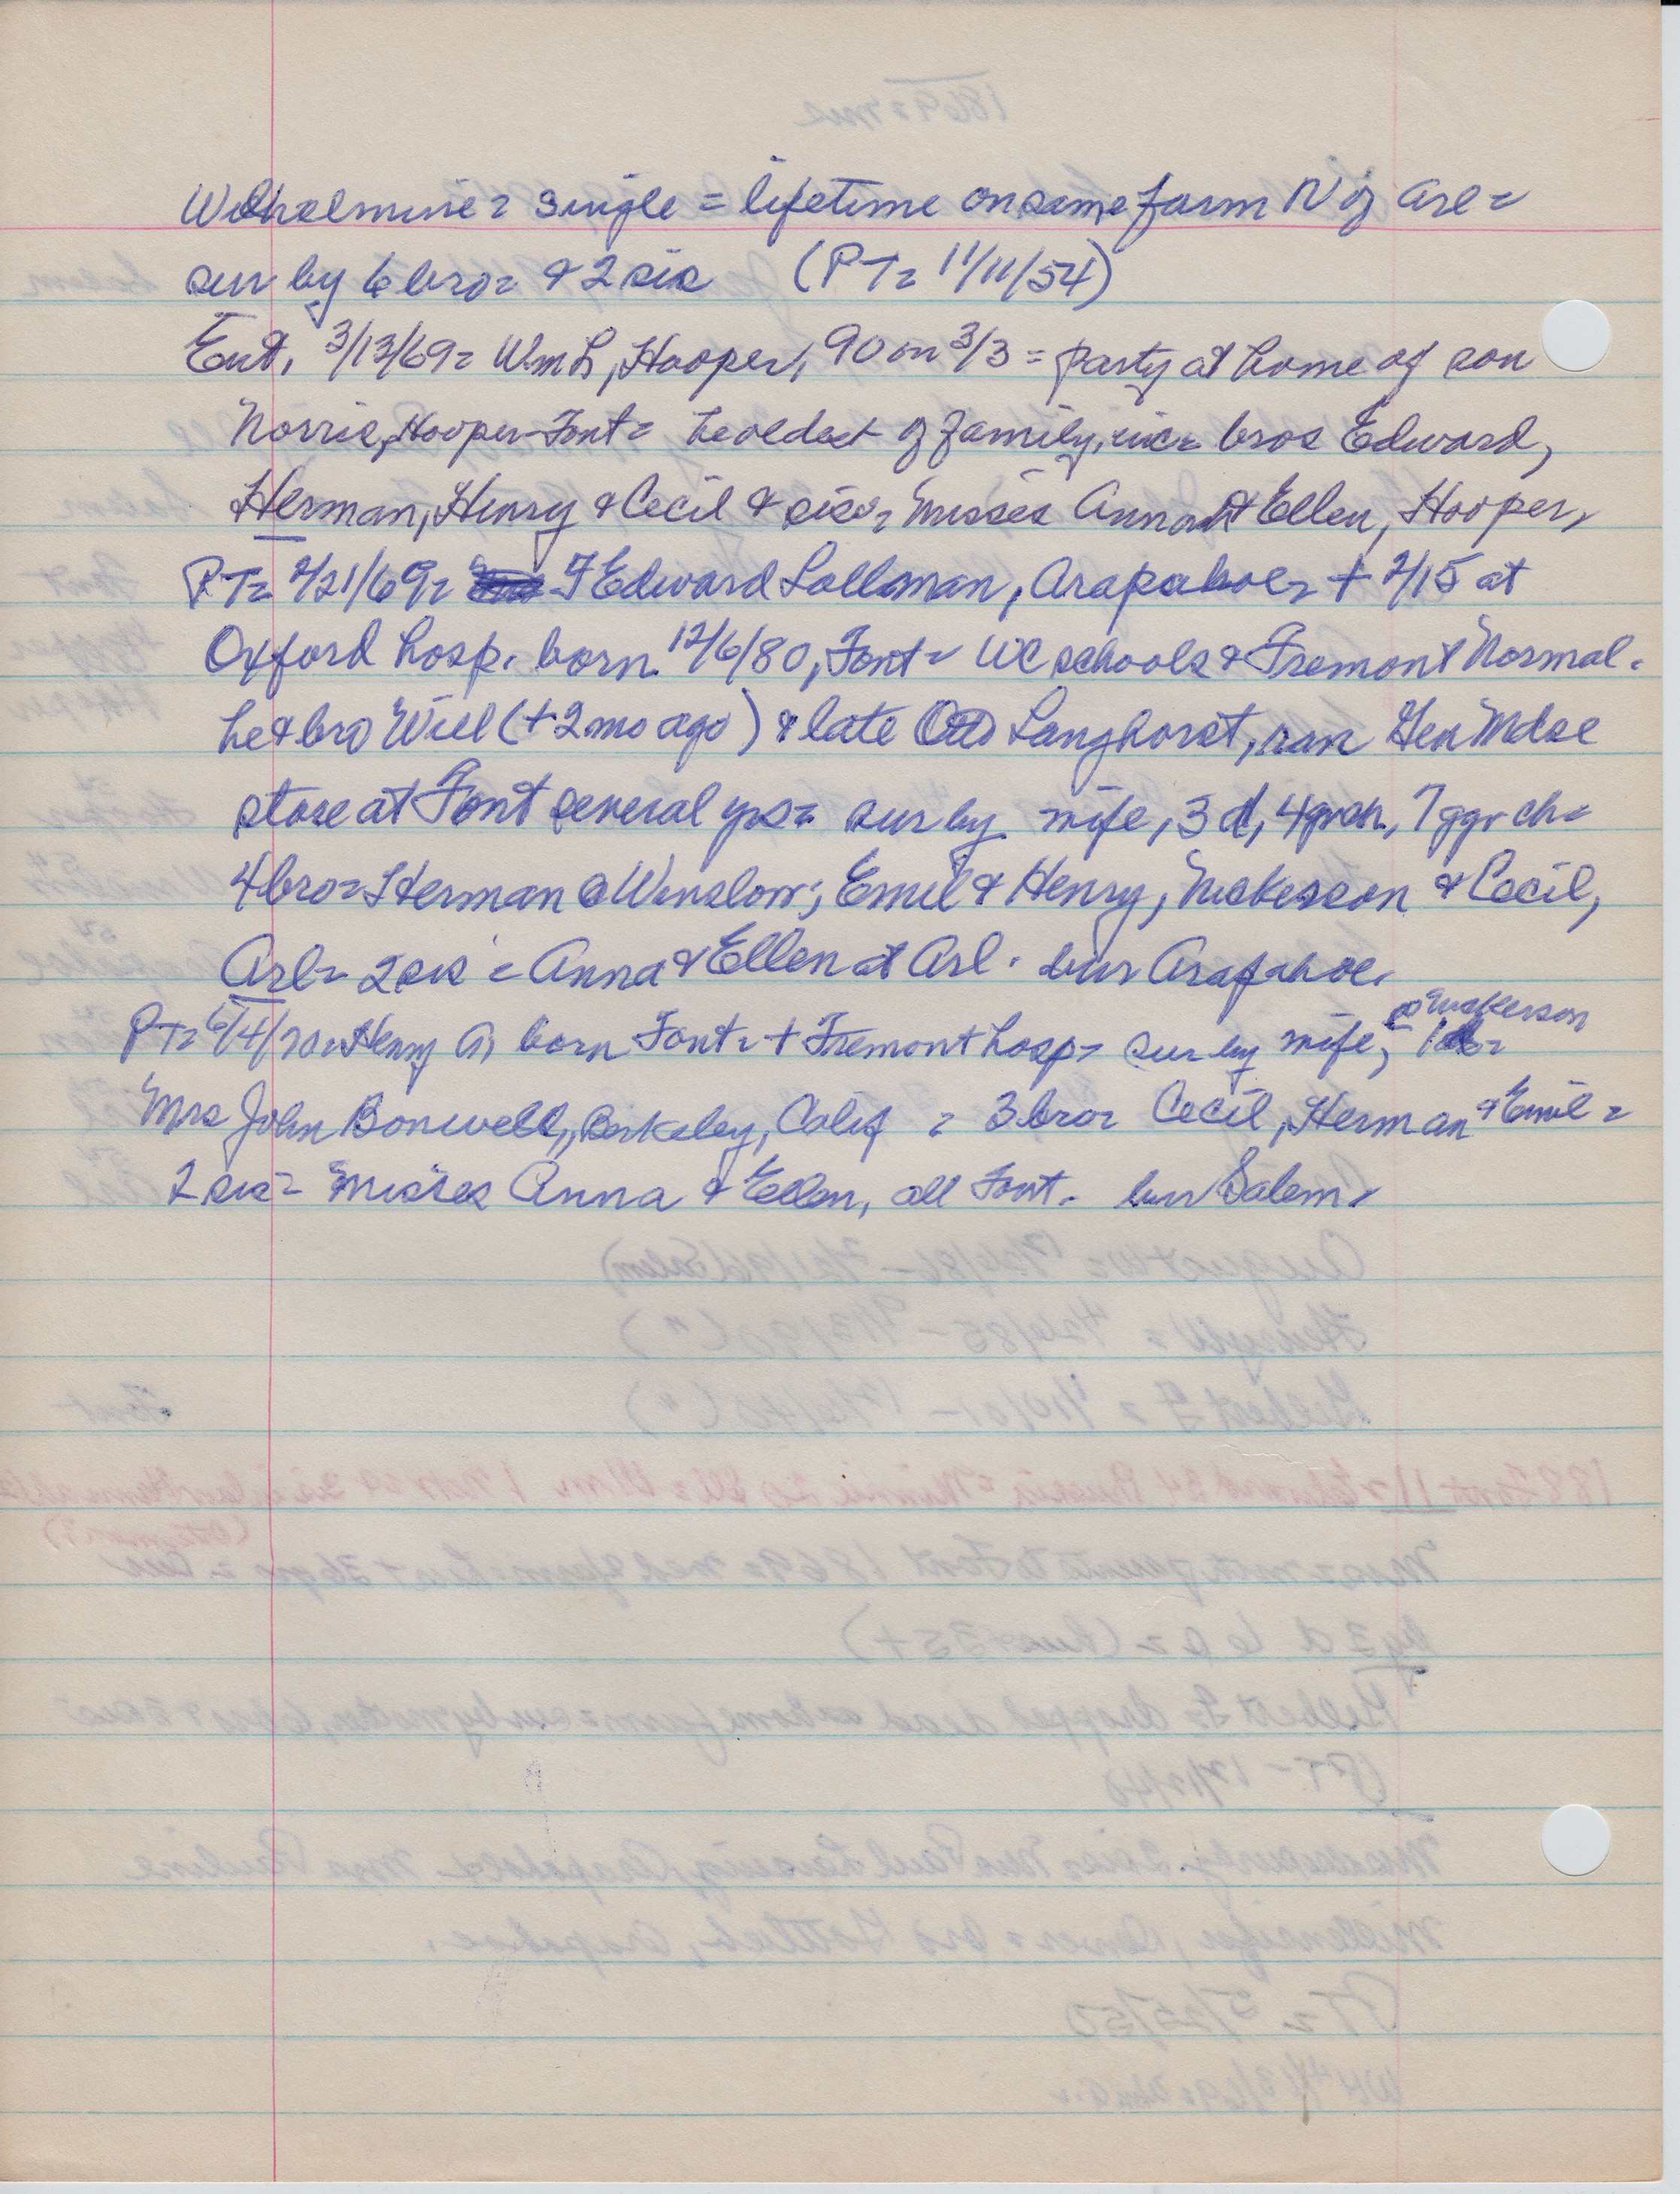 Wilhelmine = single = lifetime on same farm N of Arl =
sur by 6 bro = & 2 sis (PT = 11/11/54)
Ent. 3/13/69 = Wm L, Hooper, 90 on 3/3 = party at home of son
Norris, Hooper-Font = he oldest of family, inc = bros Edward,
Herman, Henry & Cecil & sis = Misses Anna & Ellen, Hooper,
PT = 2/21/69 = F Edward Lallman, Arapahoe = + 2/15 at
Oxford hosp. born 12/6/80, Font = WC schools & Fremont Normal.
he & bro Will (+ 2 mo ago) & late Otto Langhorst, ran Gen Mdse
store at Font several yrs = sur by wife, 3 d, 4 grch., 7 ggr ch =
4 bro = Herman @ Winslow; Emil & Henry, Nickerson & Cecil,
Arl = 2 sis = Anna & Ellen at Arl. bur Arapahoe.
PT = 6/4/70 = Henry A, born Font = + Fremont hosp = sur by wife, @ Nickerson 1 d =
Mrs John Bonwell, Berkeley, Calif = 3 bro = Cecil, Herman & Emil =
2 sis = Misses Anna & Ellen, all Font. bur Salem.